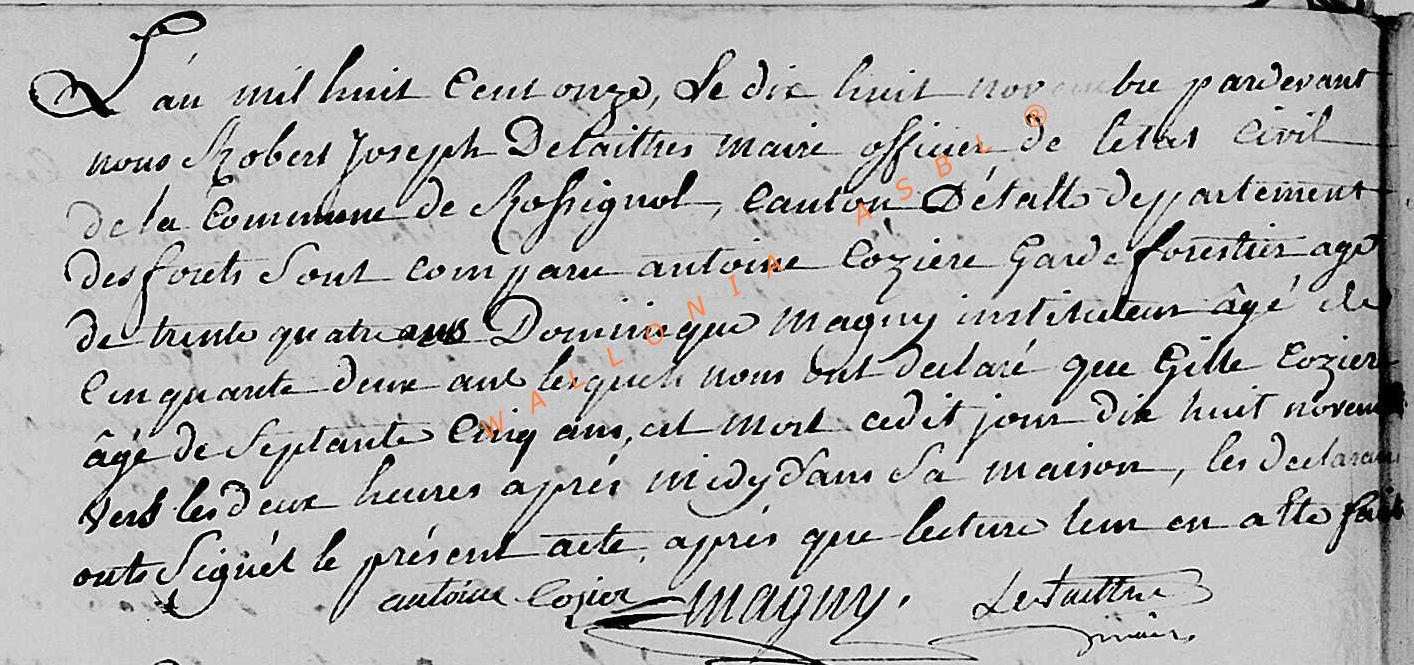 L'an mil huit Cent onze, Le dix huit novembre pardevant
nous Robert Joseph Delaittres maire officier de letat Civil
de la Commune de Rossignol, Canton Détalle departement
des forets Sont comparu antoine Cozière Garde forestier agé
de trente quatre ans Dominique Magny instituteur âgé de
Cinquante deux ans lesquels nous ont declaré que Gille Cozière
âgé de Septante Cinq ans, est mort cedit jour dix huit novembre
vers les deux heures après midy dans Sa maison, les declarans
onts Signét le présent acte, après que lecture leur en a Ete fait
antoine Cozier Magny. Delaittre
maire
WALLONIA ASBL ®